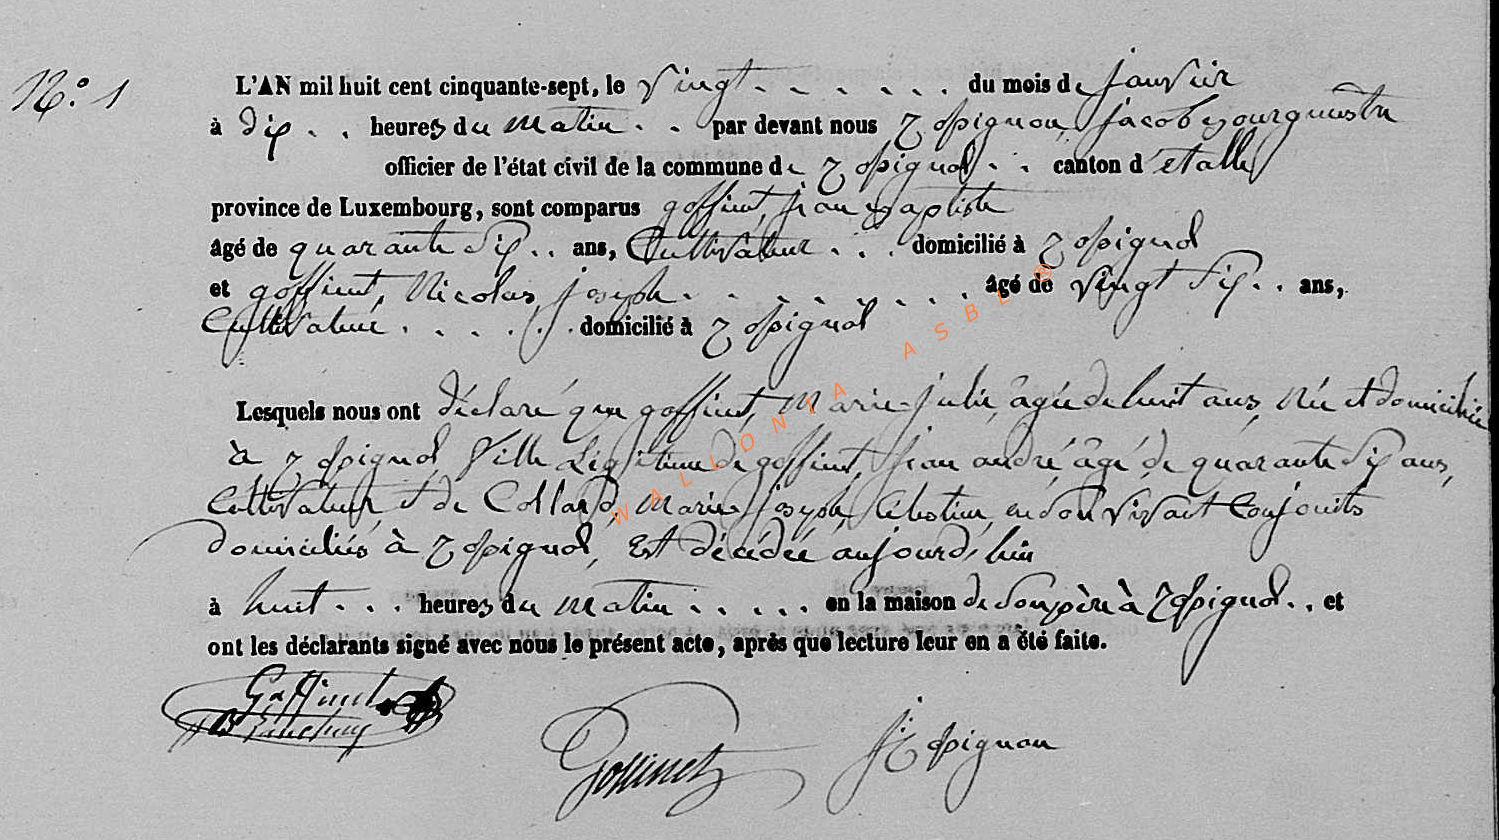 N.° 1
L'AN mil huit cent cinquante-sept, le vingt . . . . . . . du mois de janvier
à dix . . heures du matin . . par devant nous Rossignon, jacob bourgmestre
officier de l'état civil de la commune de Rossignol . . canton d'étalle
province de Luxembourg, sont comparus goffinet, jean Baptiste
âgé de quarante six . . ans, Cultivateur . . . domicilié à Rossignol
et goffinet, Nicolas joseph . . . . . . . . . âgé de vingt six . . ans,
Cultivateur . . . . . . domicilié à Rossignol
Lesquels nous ont déclaré que goffinet, Marie-julie, âgée de huit ans, Née et domiciliée
à Rossignol fille Légitime de goffinet, jean andré âgé de quarante six ans,
Cultivateur et de Collard, Marie joseph, Célestine, en son vivant Conjoints
domiciliés à Rossignol, Est décédée aujourd'hui
à huit . . . heures du matin . . . . . en la maison de son père à Rossignol . . et
ont les déclarants signé avec nous le présent acte, après que lecture leur en a été faite.
Goffinet
Goffinet
J Rossignon
WALLONIA ASBL ®